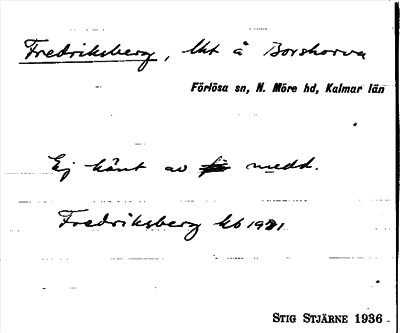 Fredriksberg, lht å Borshorva
Förlösa sn, N. Möre hd, Kalmar län
Ej känt av medd.
Fredriksberg kb 1921
STIG STJÄRNE 1936